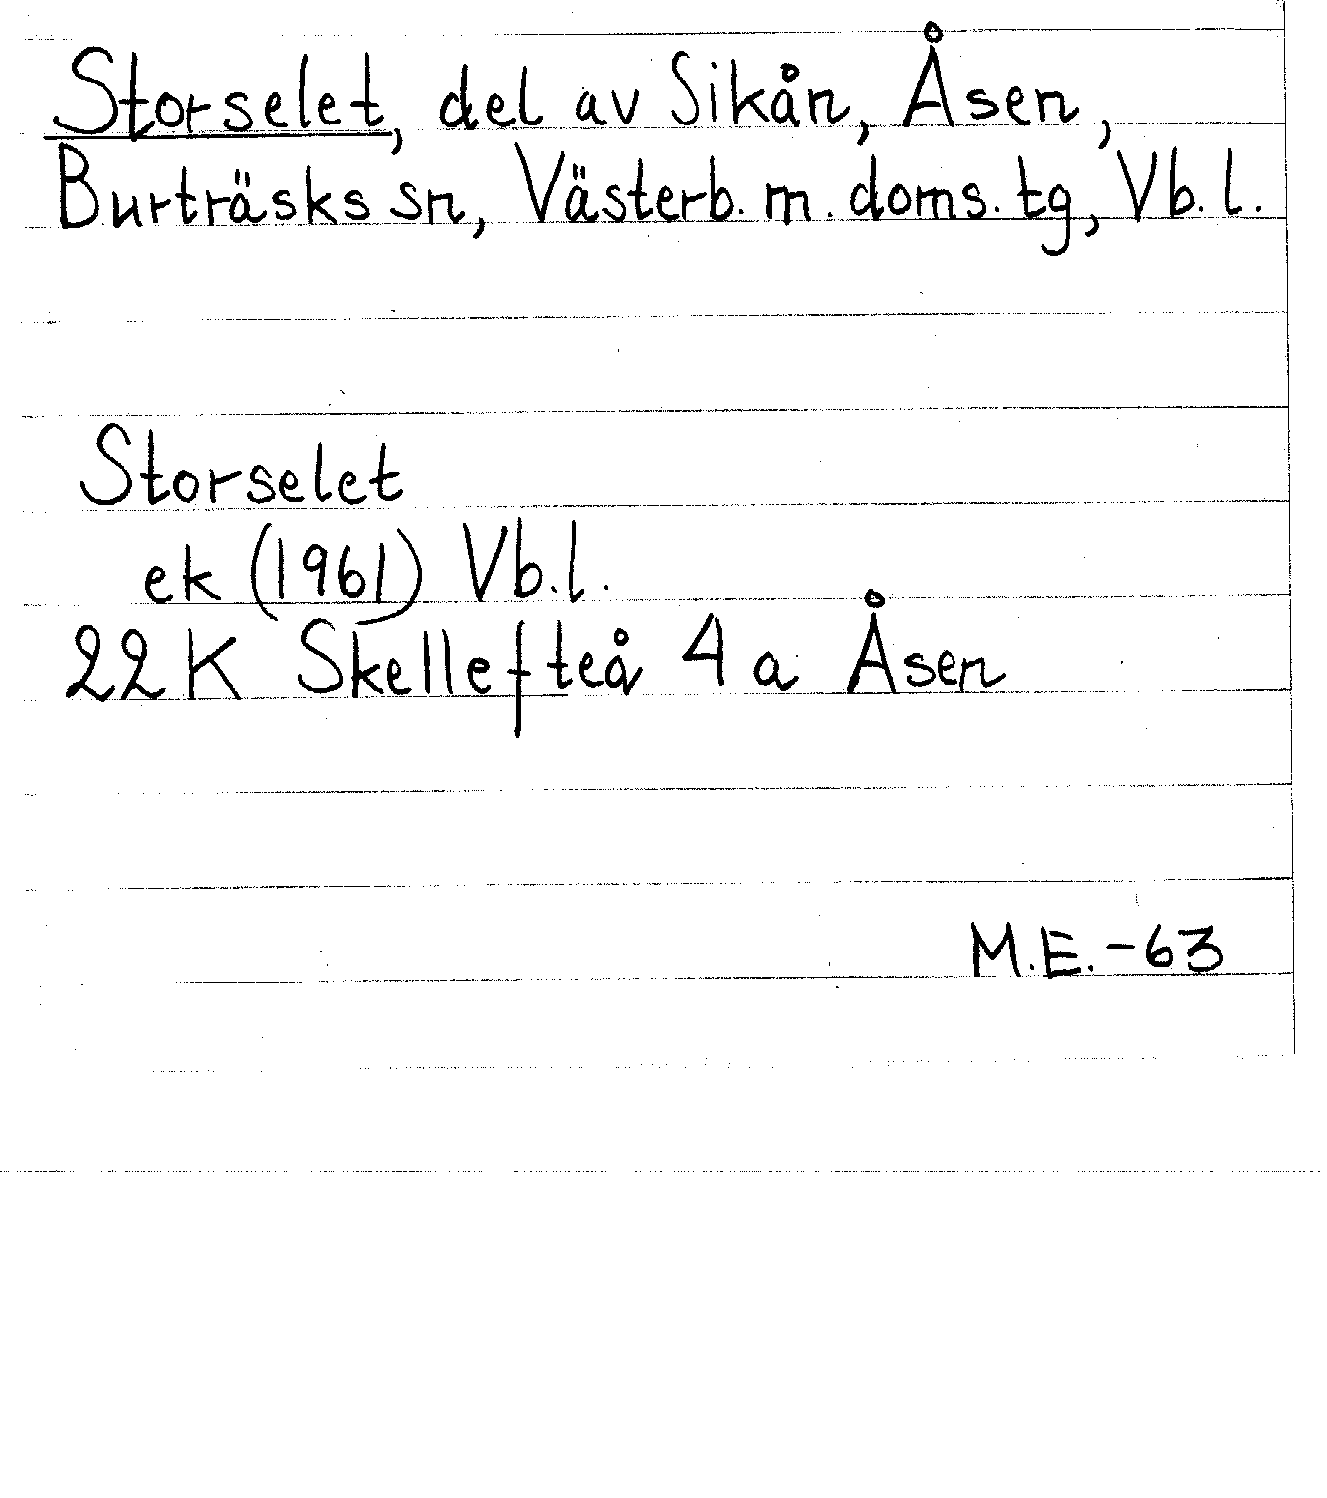 Storselet, del av Sikån, Åsen,
Burträsks sn, Västerb. m. doms. tg, Vb. l.
Storselet
ek (1961) Vb. l.
22 K Skellefteå 4 a Åsen
M.E. -63